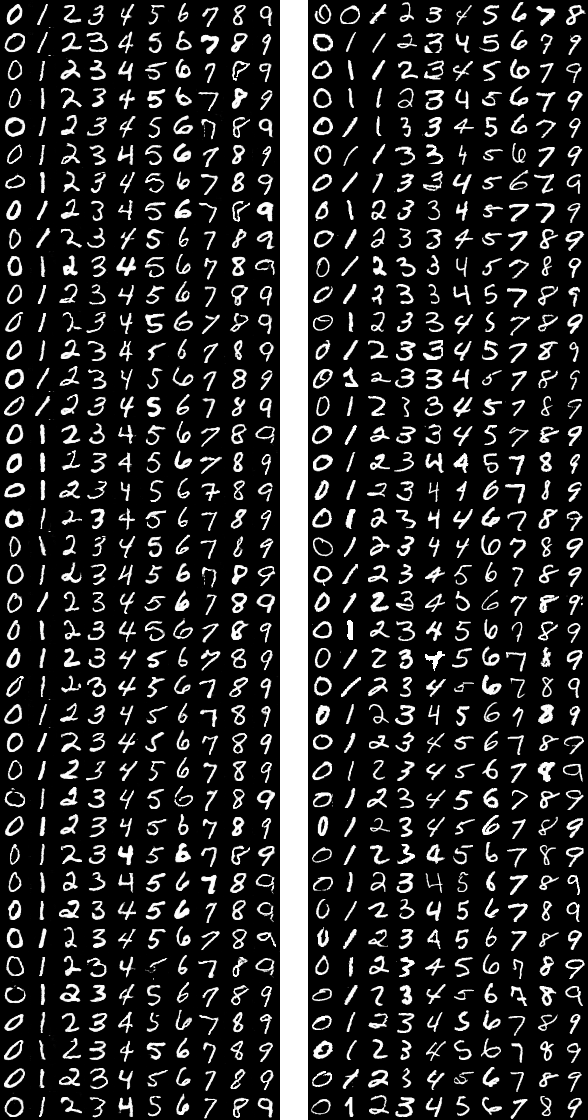 0 1 2 3 4 5 6 7 8 9 0 0 1 2 3 4 5 6 7 8
0 1 2 3 4 5 6 7 8 9 0 1 1 2 3 4 5 6 7 9
0 1 2 3 4 5 6 7 8 9 0 1 1 2 3 4 5 6 7 9
0 1 2 3 4 5 6 7 8 9 0 1 1 2 3 4 5 6 7 9
0 1 2 3 4 5 6 7 8 9 0 1 1 3 3 4 5 6 7 9
0 1 2 3 4 5 6 7 8 9 0 1 1 3 3 4 5 6 7 9
0 1 2 3 4 5 6 7 8 9 0 1 1 3 3 4 5 6 7 9
0 1 2 3 4 5 6 7 8 9 0 1 2 3 3 4 5 7 7 9
0 1 2 3 4 5 6 7 8 9 0 1 2 3 3 4 5 7 8 9
0 1 2 3 4 5 6 7 8 9 0 1 2 3 3 4 5 7 8 9
0 1 2 3 4 5 6 7 8 9 0 1 2 3 3 4 5 7 8 9
0 1 2 3 4 5 6 7 8 9 0 1 2 3 3 4 5 7 8 9
0 1 2 3 4 5 6 7 8 9 0 1 2 3 3 4 5 7 8 9
0 1 2 3 4 5 6 7 8 9 0 1 2 3 3 4 5 7 8 9
0 1 2 3 4 5 6 7 8 9 0 1 2 3 3 4 5 7 8 9
0 1 2 3 4 5 6 7 8 9 0 1 2 3 3 4 5 7 8 9
0 1 2 3 4 5 6 7 8 9 0 1 2 3 4 4 5 7 8 9
0 1 2 3 4 5 6 7 8 9 0 1 2 3 4 4 6 7 8 9
0 1 2 3 4 5 6 7 8 9 0 1 2 3 4 4 6 7 8 9
0 1 2 3 4 5 6 7 8 9 0 1 2 3 4 4 6 7 8 9
0 1 2 3 4 5 6 7 8 9 0 1 2 3 4 5 6 7 8 9
0 1 2 3 4 5 6 7 8 9 0 1 2 3 4 5 6 7 8 9
0 1 2 3 4 5 6 7 8 9 0 1 2 3 4 5 6 7 8 9
0 1 2 3 4 5 6 7 8 9 0 1 2 3 4 5 6 7 8 9
0 1 2 3 4 5 6 7 8 9 0 1 2 3 4 5 6 7 8 9
0 1 2 3 4 5 6 7 8 9 0 1 2 3 4 5 6 7 8 9
0 1 2 3 4 5 6 7 8 9 0 1 2 3 4 5 6 7 8 9
0 1 2 3 4 5 6 7 8 9 0 1 2 3 4 5 6 7 8 9
0 1 2 3 4 5 6 7 8 9 0 1 2 3 4 5 6 7 8 9
0 1 2 3 4 5 6 7 8 9 0 1 2 3 4 5 6 7 8 9
0 1 2 3 4 5 6 7 8 9 0 1 2 3 4 5 6 7 8 9
0 1 2 3 4 5 6 7 8 9 0 1 2 3 4 5 6 7 8 9
0 1 2 3 4 5 6 7 8 9 0 1 2 3 4 5 6 7 8 9
0 1 2 3 4 5 6 7 8 9 0 1 2 3 4 5 6 7 8 9
0 1 2 3 4 5 6 7 8 9 0 1 2 3 4 5 6 7 8 9
0 1 2 3 4 5 6 7 8 9 0 1 2 3 4 5 6 7 8 9
0 1 2 3 4 5 6 7 8 9 0 1 2 3 4 5 6 7 8 9
0 1 2 3 4 5 6 7 8 9 0 1 2 3 4 5 6 7 8 9
0 1 2 3 4 5 6 7 8 9 0 1 2 3 4 5 6 7 8 9
0 1 2 3 4 5 6 7 8 9 0 1 2 3 4 5 6 7 8 9